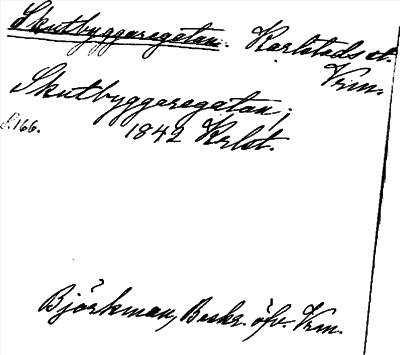 Skutbyggaregatan. Karlstads st.
Vrm.
Skutbyggaregatan,
s. 166. 1842 Krlst.
Björkman, Beskr. öfv. Vrm.